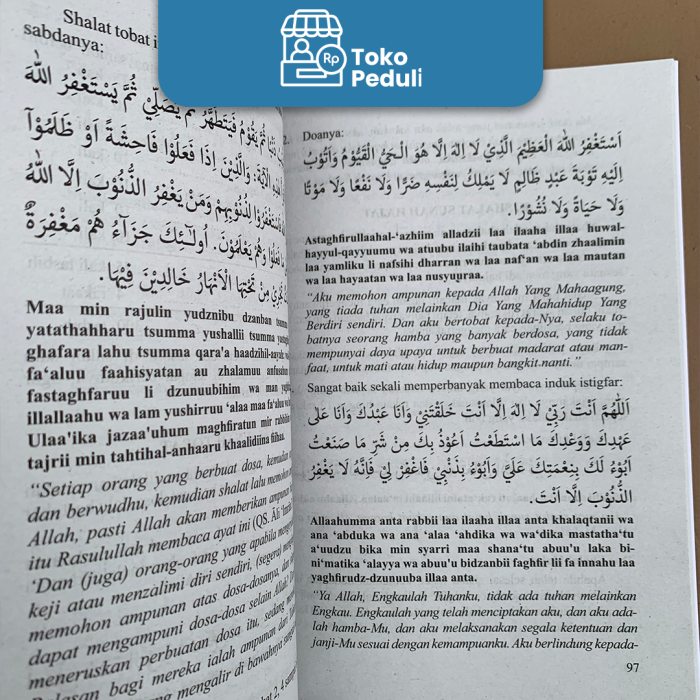 Toko
Rp
Peduli
Shalat tobat
sabdanya:
ثُمَّ يَقُوْمُ فَيَتَطَهَّرُ ثُمَّ يُصَلِّيْ ثُمَّ يَسْتَغْفِرُ اللهَ
الْآيَةَ: وَالَّذِيْنَ اِذَا فَعَلُوْا فَاحِشَةً اَوْ ظَلَمُوْآ
فَاسْتَغْفَرُوْا لِذُنُوْبِهِمْ وَمَنْ يَغْفِرُ الذُّنُوْبَ اِلَّا اللهُ
فَعَلُوْا وَهُمْ يَعْلَمُوْنَ. اُولٰٓئِكَ جَزَآءُ هُمْ مَغْفِرَةٌ
تَجْرِيْ مِنْ تَحْتِهَا الْاَنْهَارُ خَالِدِيْنَ فِيْهَا.
Maa min rajulin yudznibu dzanban tsumma
yatathahharu tsumma yushallii tsumma
ghafara lahu tsumma qara'a haadzihil-aayah:
fa‘aluu faahisyatan au zhalamuu anfusahum
fastaghfaruu li dzunuubihim wa man
illallaahu wa lam yushirruu ‘alaa maa fa‘aluu wa
Ulaa'ika jazaa'uhum maghfiratun mir rabbihim
tajrii min tahtihal-anhaaru khaalidiina fiihaa.
“Setiap orang yang berbuat dosa, kemudian
dan berwudhu, kemudian shalat lalu memohon
Allah, pasti Allah akan memberikan ampunan
itu Rasulullah membaca ayat ini (QS. Ali
‘Dan (juga) orang-orang yang apabila mengerjakan
keji atau menzalimi diri sendiri, (segera) mengingat
memohon ampunan atas dosa-dosanya, dan
dapat mengampuni dosa-dosa selain Allah?
meneruskan perbuatan dosa itu, sedang
Balasan bagi mereka ialah ampunan dari
mengalir di bawahnya
2.
Doanya:
اَسْتَغْفِرُ اللهَ الْعَظِيْمَ الَّذِيْ لَا اِلٰهَ اِلَّا هُوَ الْحَيُّ الْقَيُّوْمُ وَاَتُوْبُ
اِلَيْهِ تَوْبَةَ عَبْدٍ ظَالِمٍ لَا يَمْلِكُ لِنَفْسِهِ ضَرًّا وَلَا نَفْعًا وَلَا مَوْتًا
وَلَا حَيَاةً وَلَا نُشُوْرًا.
Astaghfirullaahal-‘azhiim alladzii laa ilaaha illaa huwal-
hayyul-qayyuumu wa atuubu ilaihi taubata ‘abdin zhaalimin
laa yamliku li nafsihi dharran wa laa naf‘an wa laa mautan
wa laa hayaatan wa laa nusyuuraa.
“Aku memohon ampunan kepada Allah Yang Mahaagung,
yang tiada tuhan melainkan Dia Yang Mahahidup Yang
Berdiri sendiri. Dan aku bertobat kepada-Nya, selaku to-
batnya seorang hamba yang banyak berdosa, yang tidak
mempunyai daya upaya untuk berbuat madarat atau man-
faat, untuk mati atau hidup maupun bangkit nanti.”
Sangat baik sekali memperbanyak membaca induk istigfar:
اَللّٰهُمَّ اَنْتَ رَبِّيْ لَا اِلٰهَ اِلَّا اَنْتَ خَلَقْتَنِيْ وَاَنَا عَبْدُكَ وَاَنَا عَلٰى
عَهْدِكَ وَوَعْدِكَ مَا اسْتَطَعْتُ اَعُوْذُ بِكَ مِنْ شَرِّ مَا صَنَعْتُ
اَبُوْءُ لَكَ بِنِعْمَتِكَ عَلَيَّ وَاَبُوْءُ بِذَنْبِيْ فَاغْفِرْ لِيْ فَاِنَّهُ لَا يَغْفِرُ
الذُّنُوْبَ اِلَّا اَنْتَ.
Allaahumma anta rabbii laa ilaaha illaa anta khalaqtanii wa
ana ‘abduka wa ana ‘alaa ‘ahdika wa wa‘dika mastatha‘tu
a‘uudzu bika min syarri maa shana‘tu abuu'u laka bi-
ni‘matika ‘alayya wa abuu'u bidzanbii faghfir lii fa innahu laa
yaghfirudz-dzunuuba illaa anta.
“Ya Allah, Engkaulah Tuhanku, tidak ada tuhan melainkan
Engkau. Engkaulah yang telah menciptakan aku, dan aku ada-
lah hamba-Mu, dan aku melaksanakan segala ketentuan dan
janji-Mu sesuai dengan kemampuanku. Aku berlindung kepada-
97